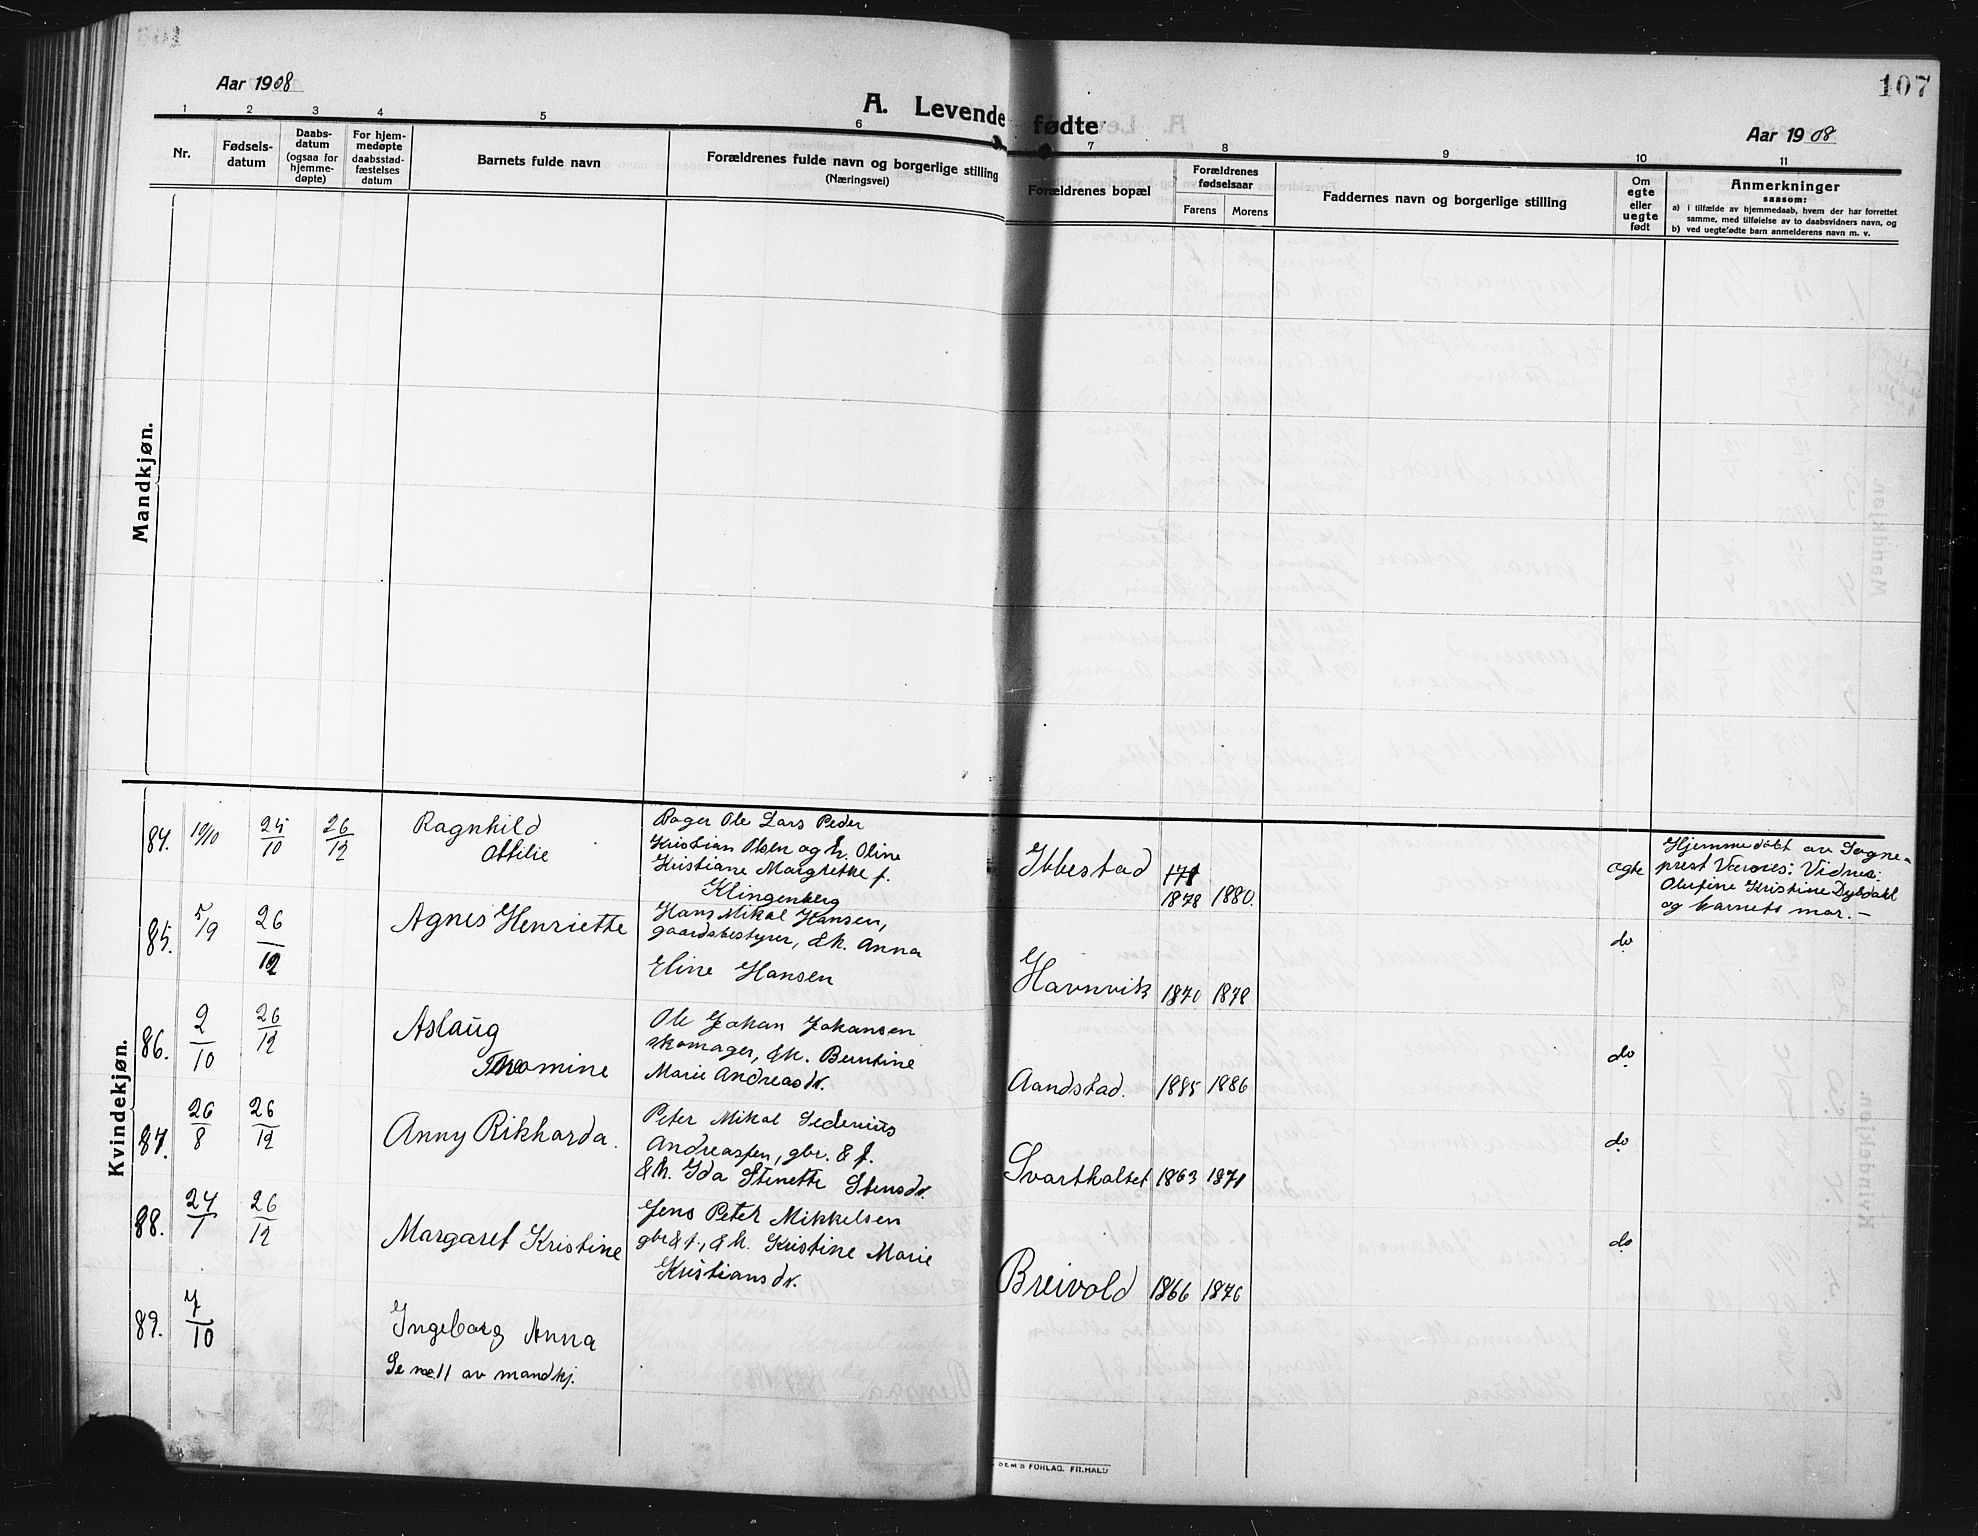 107
Aar 1908
A. Levende fødte
Aar 1908
1 2 3 4 5 6 7 8 9 10 11
Nr.
Fødsels-
datum
Daabs-
datum
(ogsaa for
hjemme-
døpte)
For hjem-
medøpte
daabsstad-
fæstelses
datum
Barnets fulde navn
Forældrenes fulde navn og borgerlige stilling
(Næringsvei)
Forældrenes bopæl
Forældrenes
fødselsaar
Farens Morens
Faddernes navn og borgerlige stilling
Om
egte
eller
uegte
født
Anmerkninger
saasom:
a) i tilfælde av hjemmedaab, hvem der har forrettet
samme, med tilføielse av to daabsvidners navn, og
b) ved uegtefødte barn anmelderens navn m. v.
Mandkjøn.
Kvindekjøn.
84. 19/10 25/10 26/12
Ragnhild
Ottilie
Bager Ole Lars Peder
Kristian Olsen og h. Oline
Kristiane Margrethe f.
Klingenberg
Ibbestad
1878 1880.
egte
Hjemmedøbt av Sogne-
prest Værøes: Vidner:
Olufine Kristine Dybdahl
og barnets mor. –
85. 5/9 26/12
Agnes Henriette
Hans Mikal Hansen,
gaardsbestyrer, & h. Anna
Eline Hansen
Havnvik 1870 1878
do
86. 2/10 26/12
Aslaug
Thomine
Ole Johan Johansen
skomager, & h. Berntine
Marie Andreasdr.
Aandstad. 1885 1886
do
87. 26/8 26/12
Anny Rikharda.
Peter Mikal Sedenius
Andreassen, gbr. & f.
& h. Ida Stenette Stensdr.
Svartholtet 1863 1871
do
88. 24/1 26/12
Margaret Kristine
Jens Peter Mikkelsen
gbr & f., & h. Kristine Marie
Kristiansdr.
Breivold 1866 1876
do
89. 7/10
Ingeborg Anna
Se no 11 av mandkj.
SEM'S FORLAG. FR.HALD